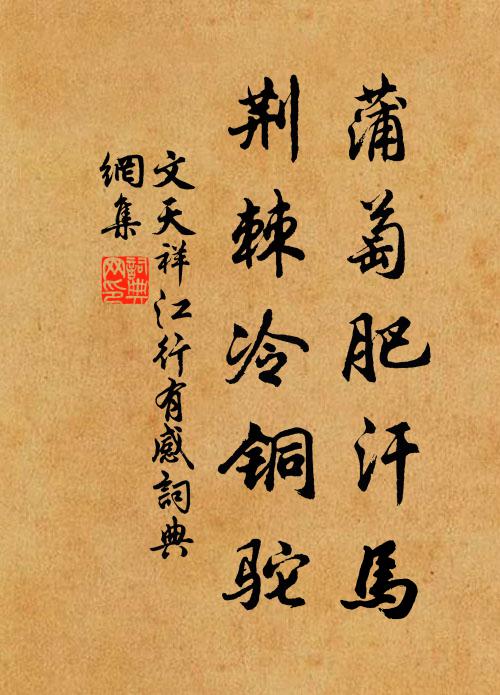 蒲萄肥汗馬
荆棘冷铜驼
文天祥江行有感詞典
網集
詞典
网印